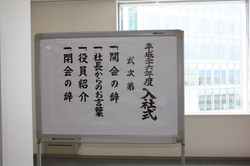 平成二十六年度 入社式
式次第
一 開会の辞
一 社長からのお言葉
一 役員紹介
一 閉会の辞